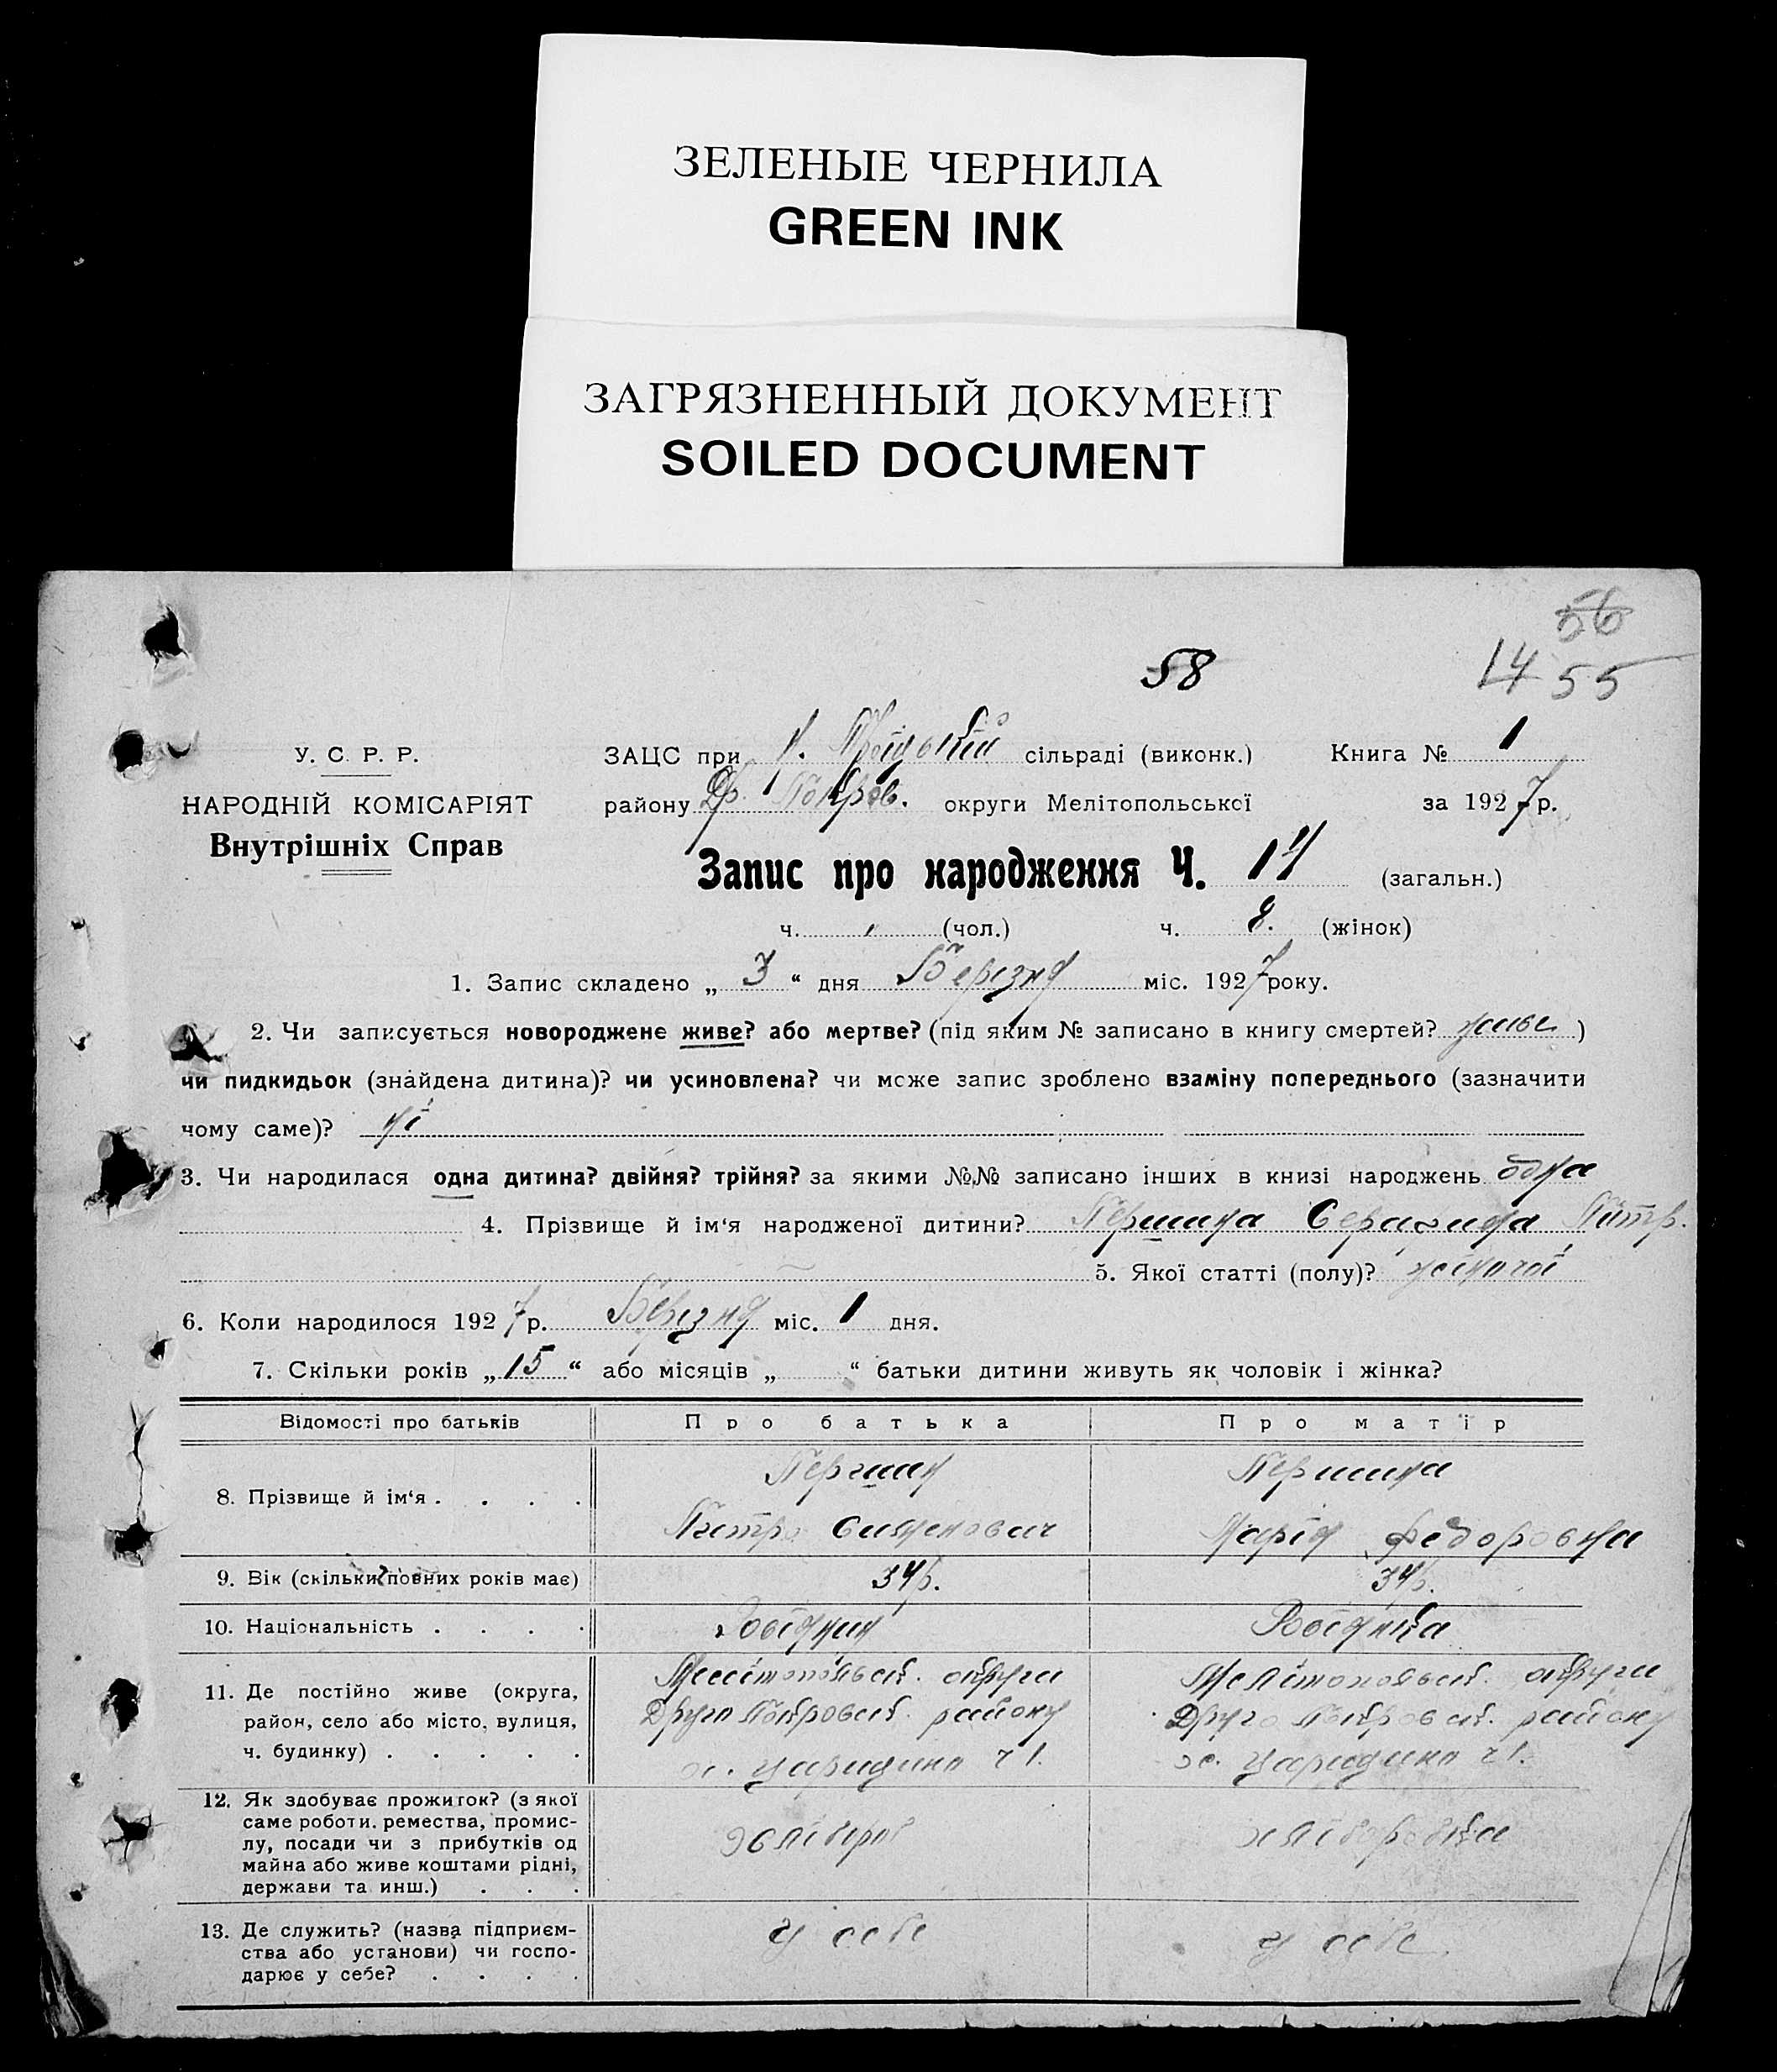 ЗЕЛЕНЫЕ ЧЕРНИЛА
GREEN INK
ЗАГРЯЗНЕННЫЙ ДОКУМЕНТ
SOILED DOCUMENT
56
58
14 55
У. С. Р. Р.
НАРОДНІЙ КОМІСАРІЯТ
Внутрішніх Справ
ЗАЦС при сільраді (виконк.) Книга № 1
району Др. Покров. округи Мелітопольської за 1927 р.
Запис про народження Ч. 14 (загальн.)
ч. (чол.) ч. 8. (жінок)
1. Запис складено „ 3 “ дня Березня міс. 1927 року.
2. Чи записується новороджене живе? або мертве? (під яким № записано в книгу смертей? живе )
чи пидкидьок (знайдена дитина)? чи усиновлена? чи може запис зроблено взаміну попереднього (зазначити
чому саме)? ні
3. Чи народилася одна дитина? двійня? трійня? за якими №№ записано інших в книзі народжень одна
4. Прізвище й ім‘я народженої дитини? Першина Серафима Петр.
5. Якої статті (полу)? жіночої
6. Коли народилося 1927 р. Березня міс. 1 дня.
7. Скільки років „ 15 “ або місяців „ “ батьки дитини живуть як чоловік і жінка?
Відомості про батьків Про батька Про матір
8. Прізвище й ім‘я . . . . Першин Першина
Петро Семенович Марія Федоровна
9. Вік (скільки повних років має) 34р. 34р.
10. Національність . . . . Росіянин Росіянка
11. Де постійно живе (округа, район, село або місто, вулиця, ч. будинку) . . . . . Мелітопольськ. округи Мелітопольськ. округи
Друго Покровськ. району Друго Покровськ. району
х. Царицино ч 1. х. Царицино ч 1.
12. Як здобуває прожиток? (з якої саме роботи. ремества, промислу, посади чи з прибутків од майна або живе коштами рідні, держави та инш.) . . . хлібороб хліборобка
13. Де служить? (назва підприємства або установи) чи господарює у себе? . . . . у себе у себе.